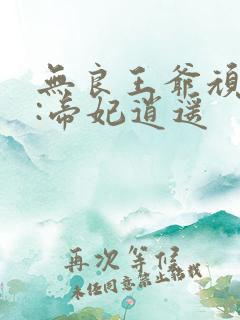 無良王爺頑
:帝妃逍遥
再次等候
未经同意禁止转载